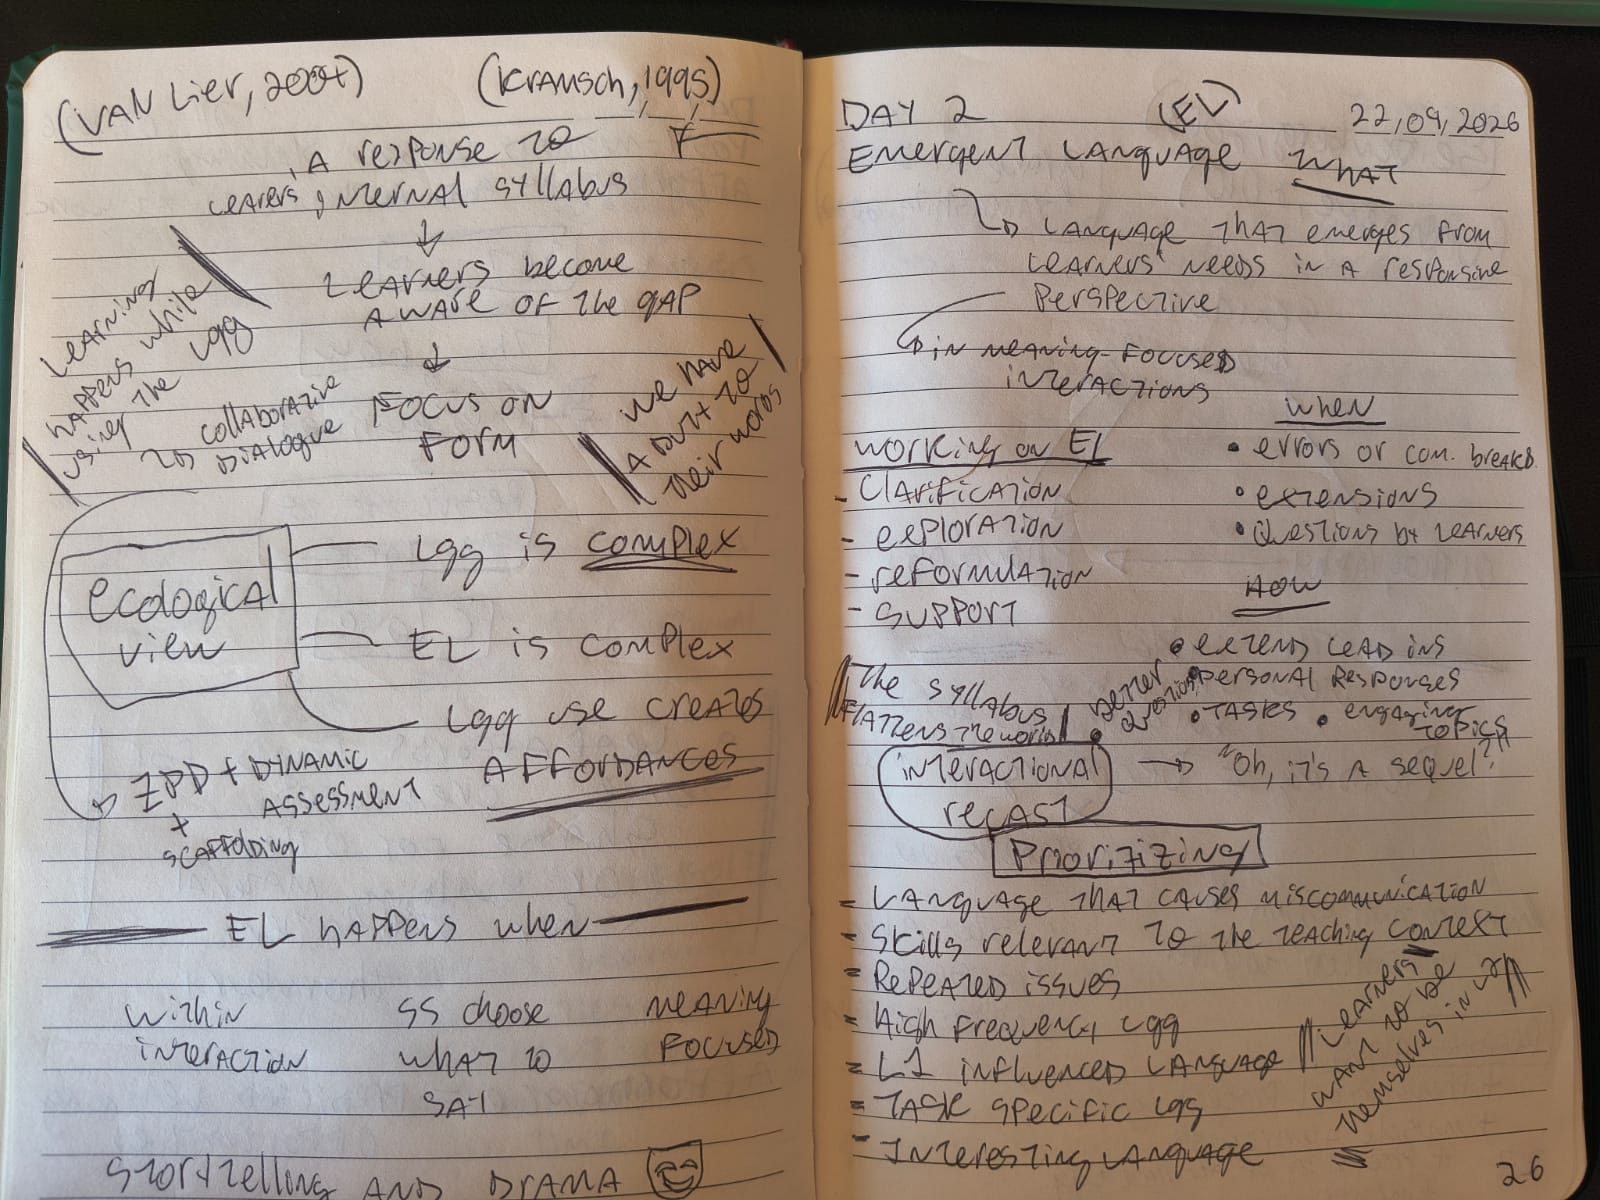 (VAN Lier, 2004) (Kramsch, 1995)
A response to
Learers internal syllabus
Learners become
aware of the gap
Focus on
Form
Learning
happens while
using the lgg
collaborative
Dialogue
we have
a duty to
their words
ecological
view
lgg is complex
EL is complex
lgg use creates
AFFORDANCES
ZPD + DYNAMIC
ASSESSMENT
+
scaffolding
EL happens when
within
interaction
SS choose
what to
say
meaning
focused
Storytelling AND DRAMA
DAY 2 (EL) 22,09,2026
Emergent Language What
Language that emerges from
Learners' needs in a responsive
Perspective
in meaning-focused
interactions
working on EL
- Clarification
- exploration
- reformulation
- support
when
• errors or com. breakd.
• extensions
• Questions by learners
HOW
• extend lead ins
• Personal Responses
• TASKS • engaging
topics
• better
questions
"The syllabus
flattens the world"
interactional
recast
→ "Oh, it's a sequel?"
Prioritizing
- Language that causes miscommunication
- Skills relevant to the teaching context
- Repeated issues
- High frequency lgg
- L1 influenced language
- Task specific lgg
- Interesting language
"Learners
want to be
themselves in L2"
26